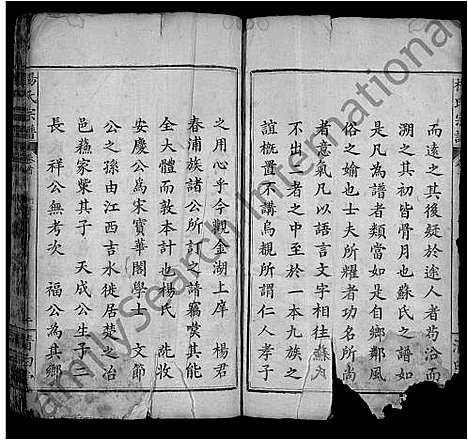 楊氏宗譜
而遠之其後疑於途人者苟洽而
溯之其初皆骨月也蘇氏之譜如
是凡為譜者類當如是自鄉鄰風
俗之媮也士夫所糴者功名所尚
者意氣凡以語言文字相往
不出者之中至於一本九族之
誼概置不講烏覩所謂仁人孝子
之用心乎今觀金湖上庠 楊君
春浦族諸公所訂之譜竊嘆其能
全大體而敦本計也楊氏 戺收
安慶公為宋寶華閣學士 文節
公之孫由江西吉水徙居楚之冶
邑蘓家葉其子 天成公生子二
長 祥公無考次 福公為其鄉
楊氏宗譜 卷首
FamilySearch International